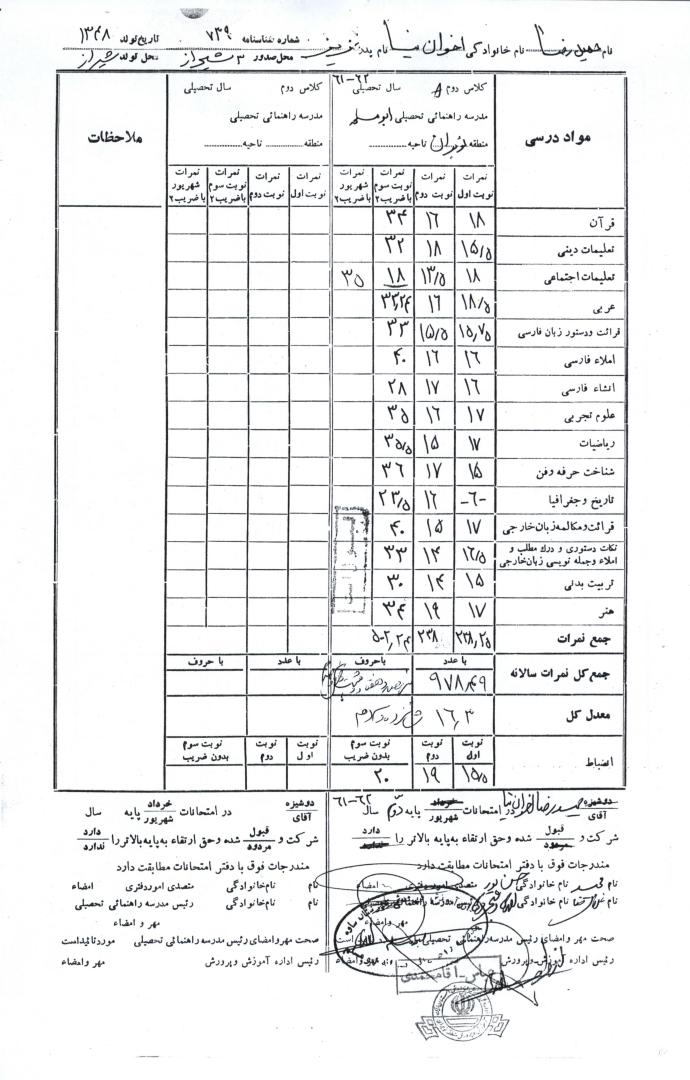 نام حمیدرضا نام خانوادگی اخوان نیا نام پدر شماره شناسنامه ۷۳۹ تاریخ تولد ۱۳۴۸
محل صدور ۳ شیراز محل تولد شیراز
مواد درسی
کلاس دوم سال تحصیلی ۶۲-۶۱
مدرسه راهنمائی تحصیلی ابومسلم
منطقه تهران ناحیه
کلاس دوم سال تحصیلی
مدرسه راهنمائی تحصیلی
منطقه ناحیه
ملاحظات
نمرات نوبت اول نمرات نوبت دوم نمرات نوبت سوم باضریب ۲ نمرات شهریور باضریب ۲ نمرات نوبت اول نمرات نوبت دوم نمرات نوبت سوم باضریب ۲ نمرات شهریور باضریب ۲
قرآن ۱۸ ۱۶ ۳۴
تعلیمات دینی ۱۵/۵ ۱۸ ۳۲
تعلیمات اجتماعی ۱۸ ۱۳/۵ ۱۸ ۳۵
عربی ۱۸/۵ ۱۶
قرائت ودستور زبان فارسی ۱۵,۷۵ ۱۵/۵ ۳۳
املاء فارسی ۱۶ ۱۶ ۴۰
انشاء فارسی ۱۶ ۱۷ ۲۸
علوم تجربی ۱۷ ۱۶ ۳۵
ریاضیات ۱۷ ۱۵ ۳۵/۵
شناخت حرفه وفن ۱۵ ۱۷ ۳۶
تاریخ وجغرافیا -۶- ۱۶ ۲۳/۵
قرائت ومکالمه زبان خارجی ۱۷ ۱۵ ۴۰
نکات دستوری و درك مطلب و
املاء وجمله نویسی زبان خارجی ۱۶/۵ ۱۴ ۳۳
تربیت بدنی ۱۵ ۱۴ ۳۰
هنر ۱۷ ۱۹ ۳۴
جمع نمرات ۲۳۸,۲۵ ۲۳۸ ۵۰۲,۲۴
با عدد باحروف با عدد با حروف
جمع کل نمرات سالانه ۹۷۸,۴۹
معدل کل ۱۶,۳
انضباط
نوبت اول نوبت دوم نوبت سوم بدون ضریب نوبت اول نوبت دوم نوبت سوم بدون ضریب
۱۵/۵ ۱۹ ۲۰
دوشیزه آقای حمیدرضا اخوان نیا در امتحانات خرداد شهریور پایه دوم سال ۶۲-۶۱
شرکت و قبول مردود شده وحق ارتقاء به پایه بالاتر را دارد ندارد
مندرجات فوق با دفتر امتحانات مطابقت دارد
نام نام خانوادگی متصدی امور دفتری امضاء
نام نام خانوادگی
مهر وامضاء
صحت مهر وامضای رئیس مدرسه راهنمائی تحصیلی
رئیس اداره آموزش وپرورش
عباس - آقامحمدی
دوشیزه آقای در امتحانات خرداد شهریور پایه سال
شرکت و قبول مردود شده وحق ارتقاء به پایه بالاتر را دارد ندارد
مندرجات فوق با دفتر امتحانات مطابقت دارد
نام نام خانوادگی متصدی امور دفتری امضاء
نام نام خانوادگی رئیس مدرسه راهنمائی تحصیلی
مهر و امضاء
صحت مهر وامضای رئیس مدرسه راهنمائی تحصیلی مورد تائید است
رئیس اداره آموزش وپرورش مهر وامضاء